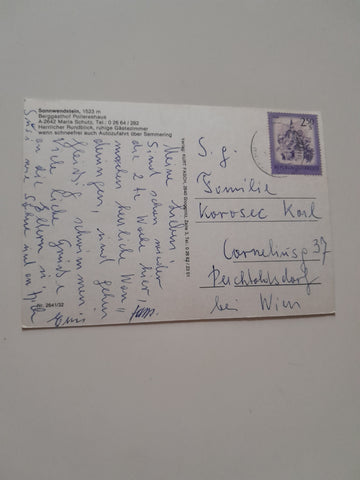 Sonnwendstein, 1523 m
Berggasthof Pollereshaus
A-2642 Maria Schutz, Tel. 0 26 64 / 292
Herrlicher Rundblick, ruhige Gästezimmer
wenn schneefrei auch Autozufahrt über Semmering
Meine Lieben!
Sind schon wieder
die 2te Woche hier,
machen herrliche Wan-
derungen, und gehen
fleißig schwimmen
Viele liebe Grüsse
an die Eltern u.
Nr. 2641/32
2.50
S. g.
Familie
Korosec Karl
Corneliusg 37
Perchtoldsdorf
bei Wien